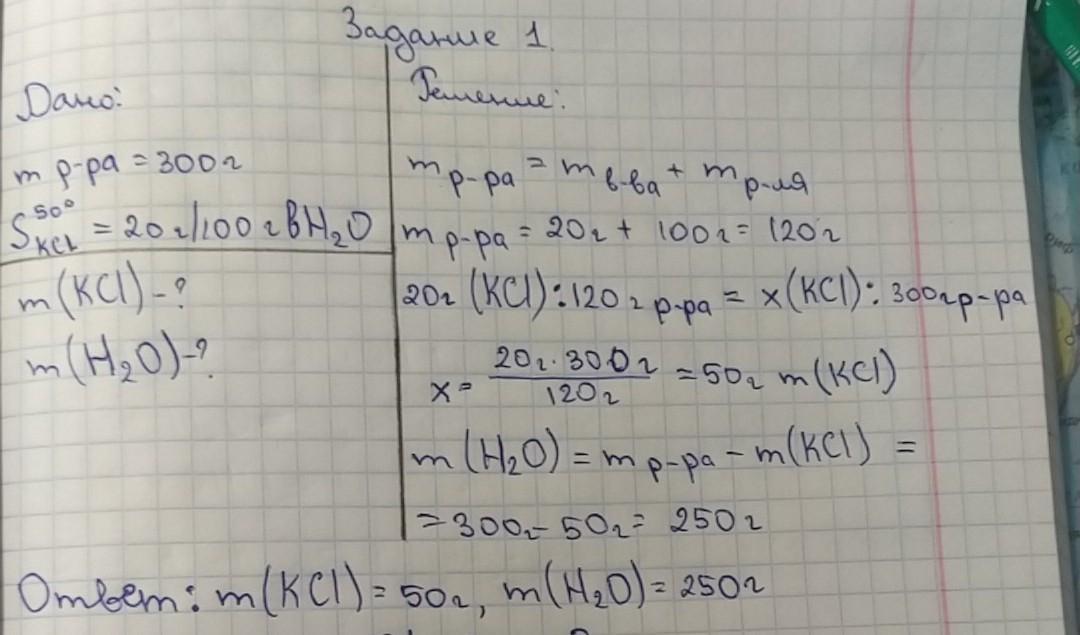 Задание 1.
Дано:
m р-ра = 300г
S⁵⁰°KCl = 20г/100г в H₂O
m(KCl) - ?
m(H₂O) - ?
Решение:
m р-ра = m в-ва + m р-ля
m р-ра = 20г + 100г = 120г
20г (KCl) : 120г р-ра = x(KCl) : 300г р-ра
x = 20г · 300г / 120г = 50г m(KCl)
m(H₂O) = m р-ра - m(KCl) =
= 300г - 50г = 250г
Ответ: m(KCl) = 50г, m(H₂O) = 250г